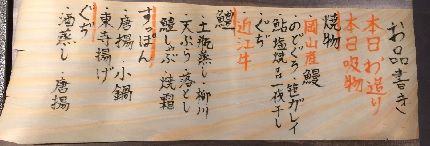 お品書き
本日お造り
本日吸物
焼物
岡山産鰻
・のどぐろ・笹ガレイ
・鮎塩焼き・一夜干し
・ぐぢ
近江牛
鱧
・土瓶蒸し・柳川
・天ぷら・落とし
・鱧しゃぶ・焼霜
すっぽん
・唐揚・小鍋
・東寺揚げ
ぐぢ
・酒蒸し・唐揚